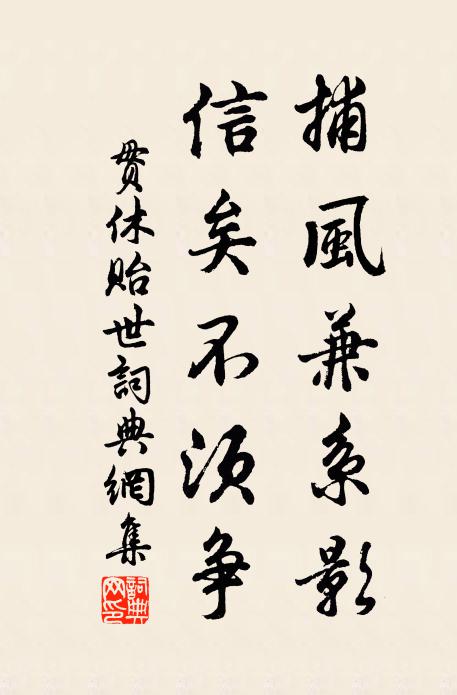 捕風兼系影
信矣不須争
貫休貽世詞典網集
詞典網印